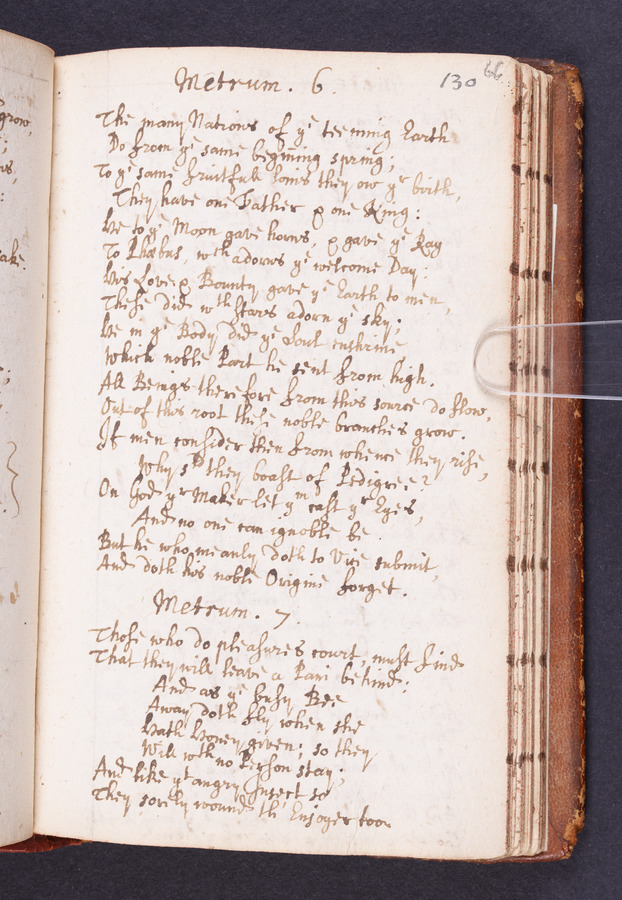 grow,
ake.
Metrum. 6.
130
66
The many Nations of ye teeming Earth
Do from ye same begining spring;
To ye same fruitfull loins they ow yr birth,
They have one Father & one King:
He to ye Moon gave horns, & gave ye Ray
To Phœbus, wch adorns ye welcome Day:
His Love & Bounty gave ye Earth to men,
These did wth Stares adorn ye sky;
He in ye Body did ye Soul enshrine
Which noble Part he sent from high.
All Beings therefore from this source do flow,
Out of this root these noble branches grow.
If men consider then from whence they rise,
Why sd they boast of Pedigree?
On God yr Maker let ym cast yr Eyes,
And no one can ignoble be.
But he who meanly doth to Vice submit,
And doth his noble Origine forget.
Metrum. 7.
Those who do pleasures court, must find
That they will leave a Pain behind;
And as ye busy Bee
Away doth fly when she
Hath Honey given; so they
Will wth no Person stay;
And like yt angry Insect so
They sorely wound th' Enjoyer too.